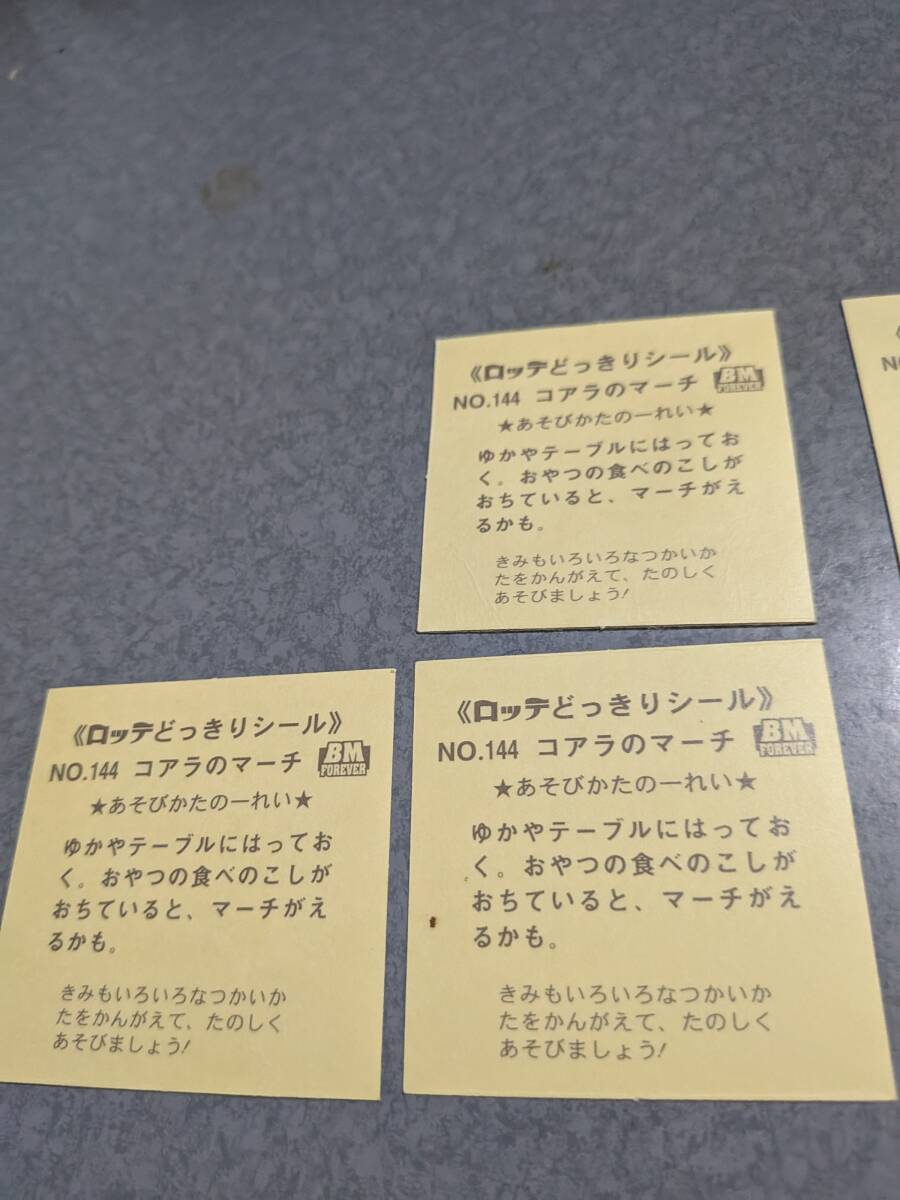 《ロッテどっきりシール》
NO.144 コアラのマーチ BM FOREVER
★あそびかたの一れい★
ゆかやテーブルにはってお
く。おやつの食べのこしが
おちていると、マーチがえ
るかも。
きみもいろいろなつかいか
たをかんがえて、たのしく
あそびましょう!
《ロッテどっきりシール》
NO.144 コアラのマーチ BM FOREVER
★あそびかたの一れい★
ゆかやテーブルにはってお
く。おやつの食べのこしが
おちていると、マーチがえ
るかも。
きみもいろいろなつかいか
たをかんがえて、たのしく
あそびましょう!
《ロッテどっきりシール》
NO.144 コアラのマーチ BM FOREVER
★あそびかたの一れい★
ゆかやテーブルにはってお
く。おやつの食べのこしが
おちていると、マーチがえ
るかも。
きみもいろいろなつかいか
たをかんがえて、たのしく
あそびましょう!